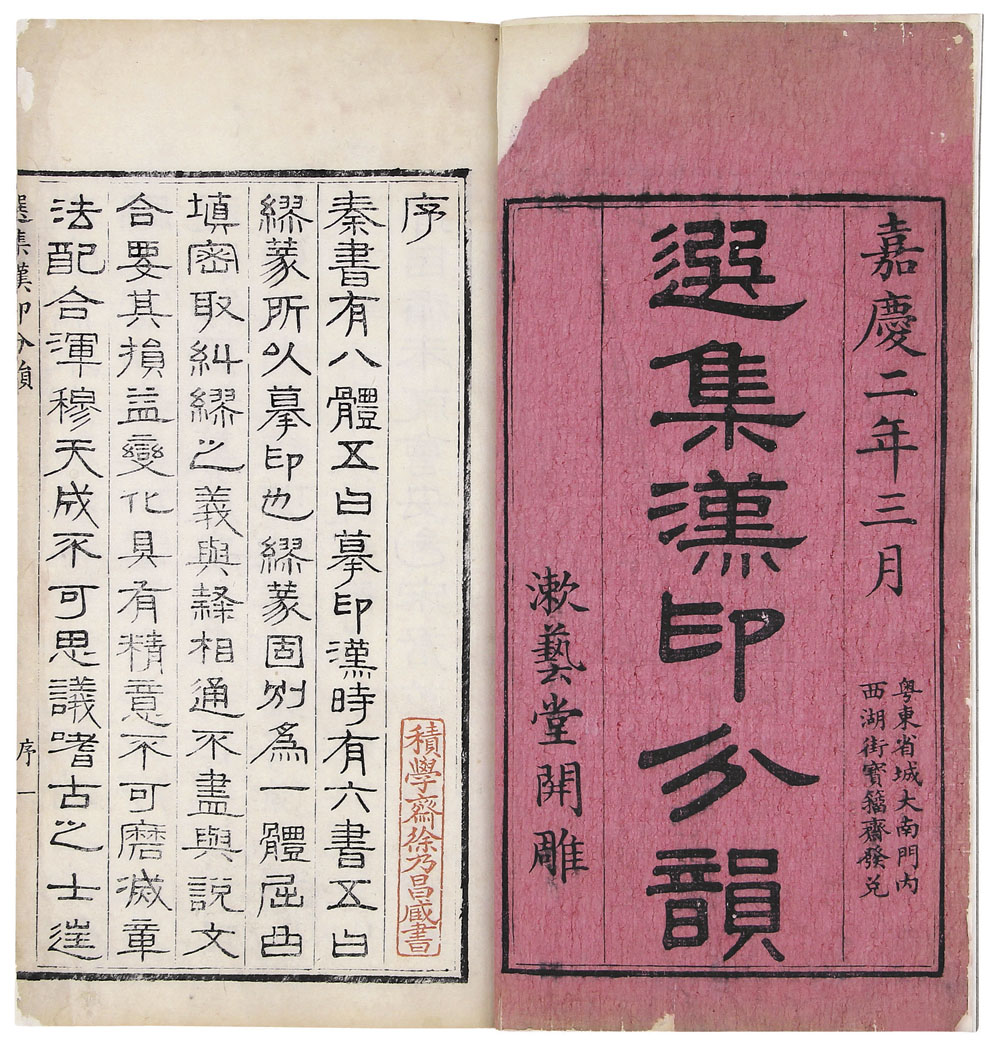 嘉慶二年三月
粤東省城大南門内
西湖街寳籀齋發兑
選集漢印分韻
漱藝堂開雕
序
積學齋徐乃昌藏書
秦書有八體五曰摹印漢時有六書五曰
繆篆所以摹印也繆篆固別爲一體屈曲
填密取糾繆之義與隸相通不盡與說文
合要其損益變化具有精意不可磨滅章
法配合渾穆天成不可思議嗜古之士
選集漢印分韻
序
一